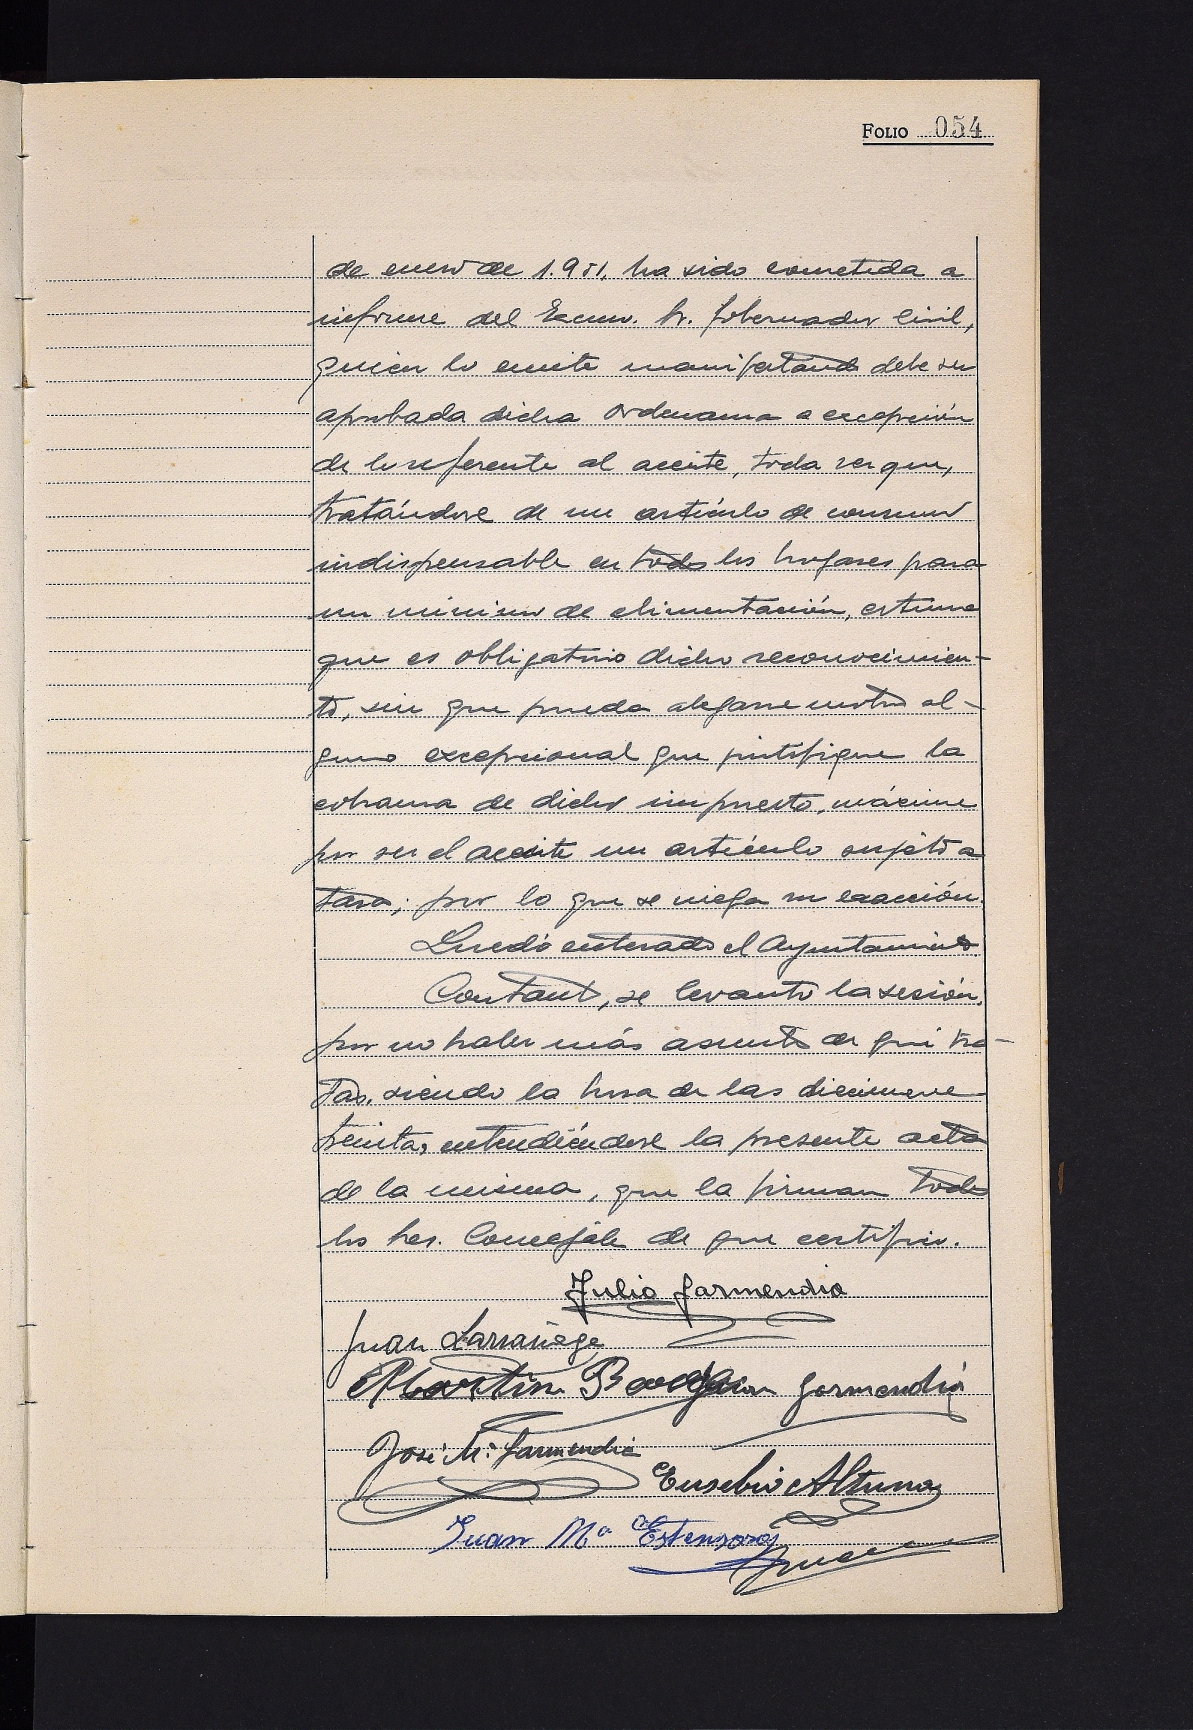 FOLIO 054
de enero de 1.951, ha sido sometida a
informe del Excmo. Sr. Gobernador Civil,
quien lo emite manifestando debe ser
aprobada dicha Ordenanza a excepción
de lo referente al aceite, toda vez que,
tratándose de un artículo de consumo
indispensable en todos los hogares para
un mínimo de alimentación, estima
que es obligatorio dicho reconocimien-
to, sin que pueda alegarse motivo al-
guno excepcional que justifique la
cobranza de dicho impuesto, máxime
por ser el aceite un artículo sujeto a
tasa; por lo que se niega su exacción.
Quedó enterado el Ayuntamiento.
Con tanto, se levantó la sesión,
por no haber más asuntos de qué tra-
tar, siendo la hora de las diecinueve
treinta, extendiéndose la presente acta
de la misma, que la firman todos
los Sres. Concejales de que certifico.
Julio Garmendia
Juan Larrañaga
Martin Garmendia
José M.ª Garmendia
Eusebio Altuna
Juan Mª